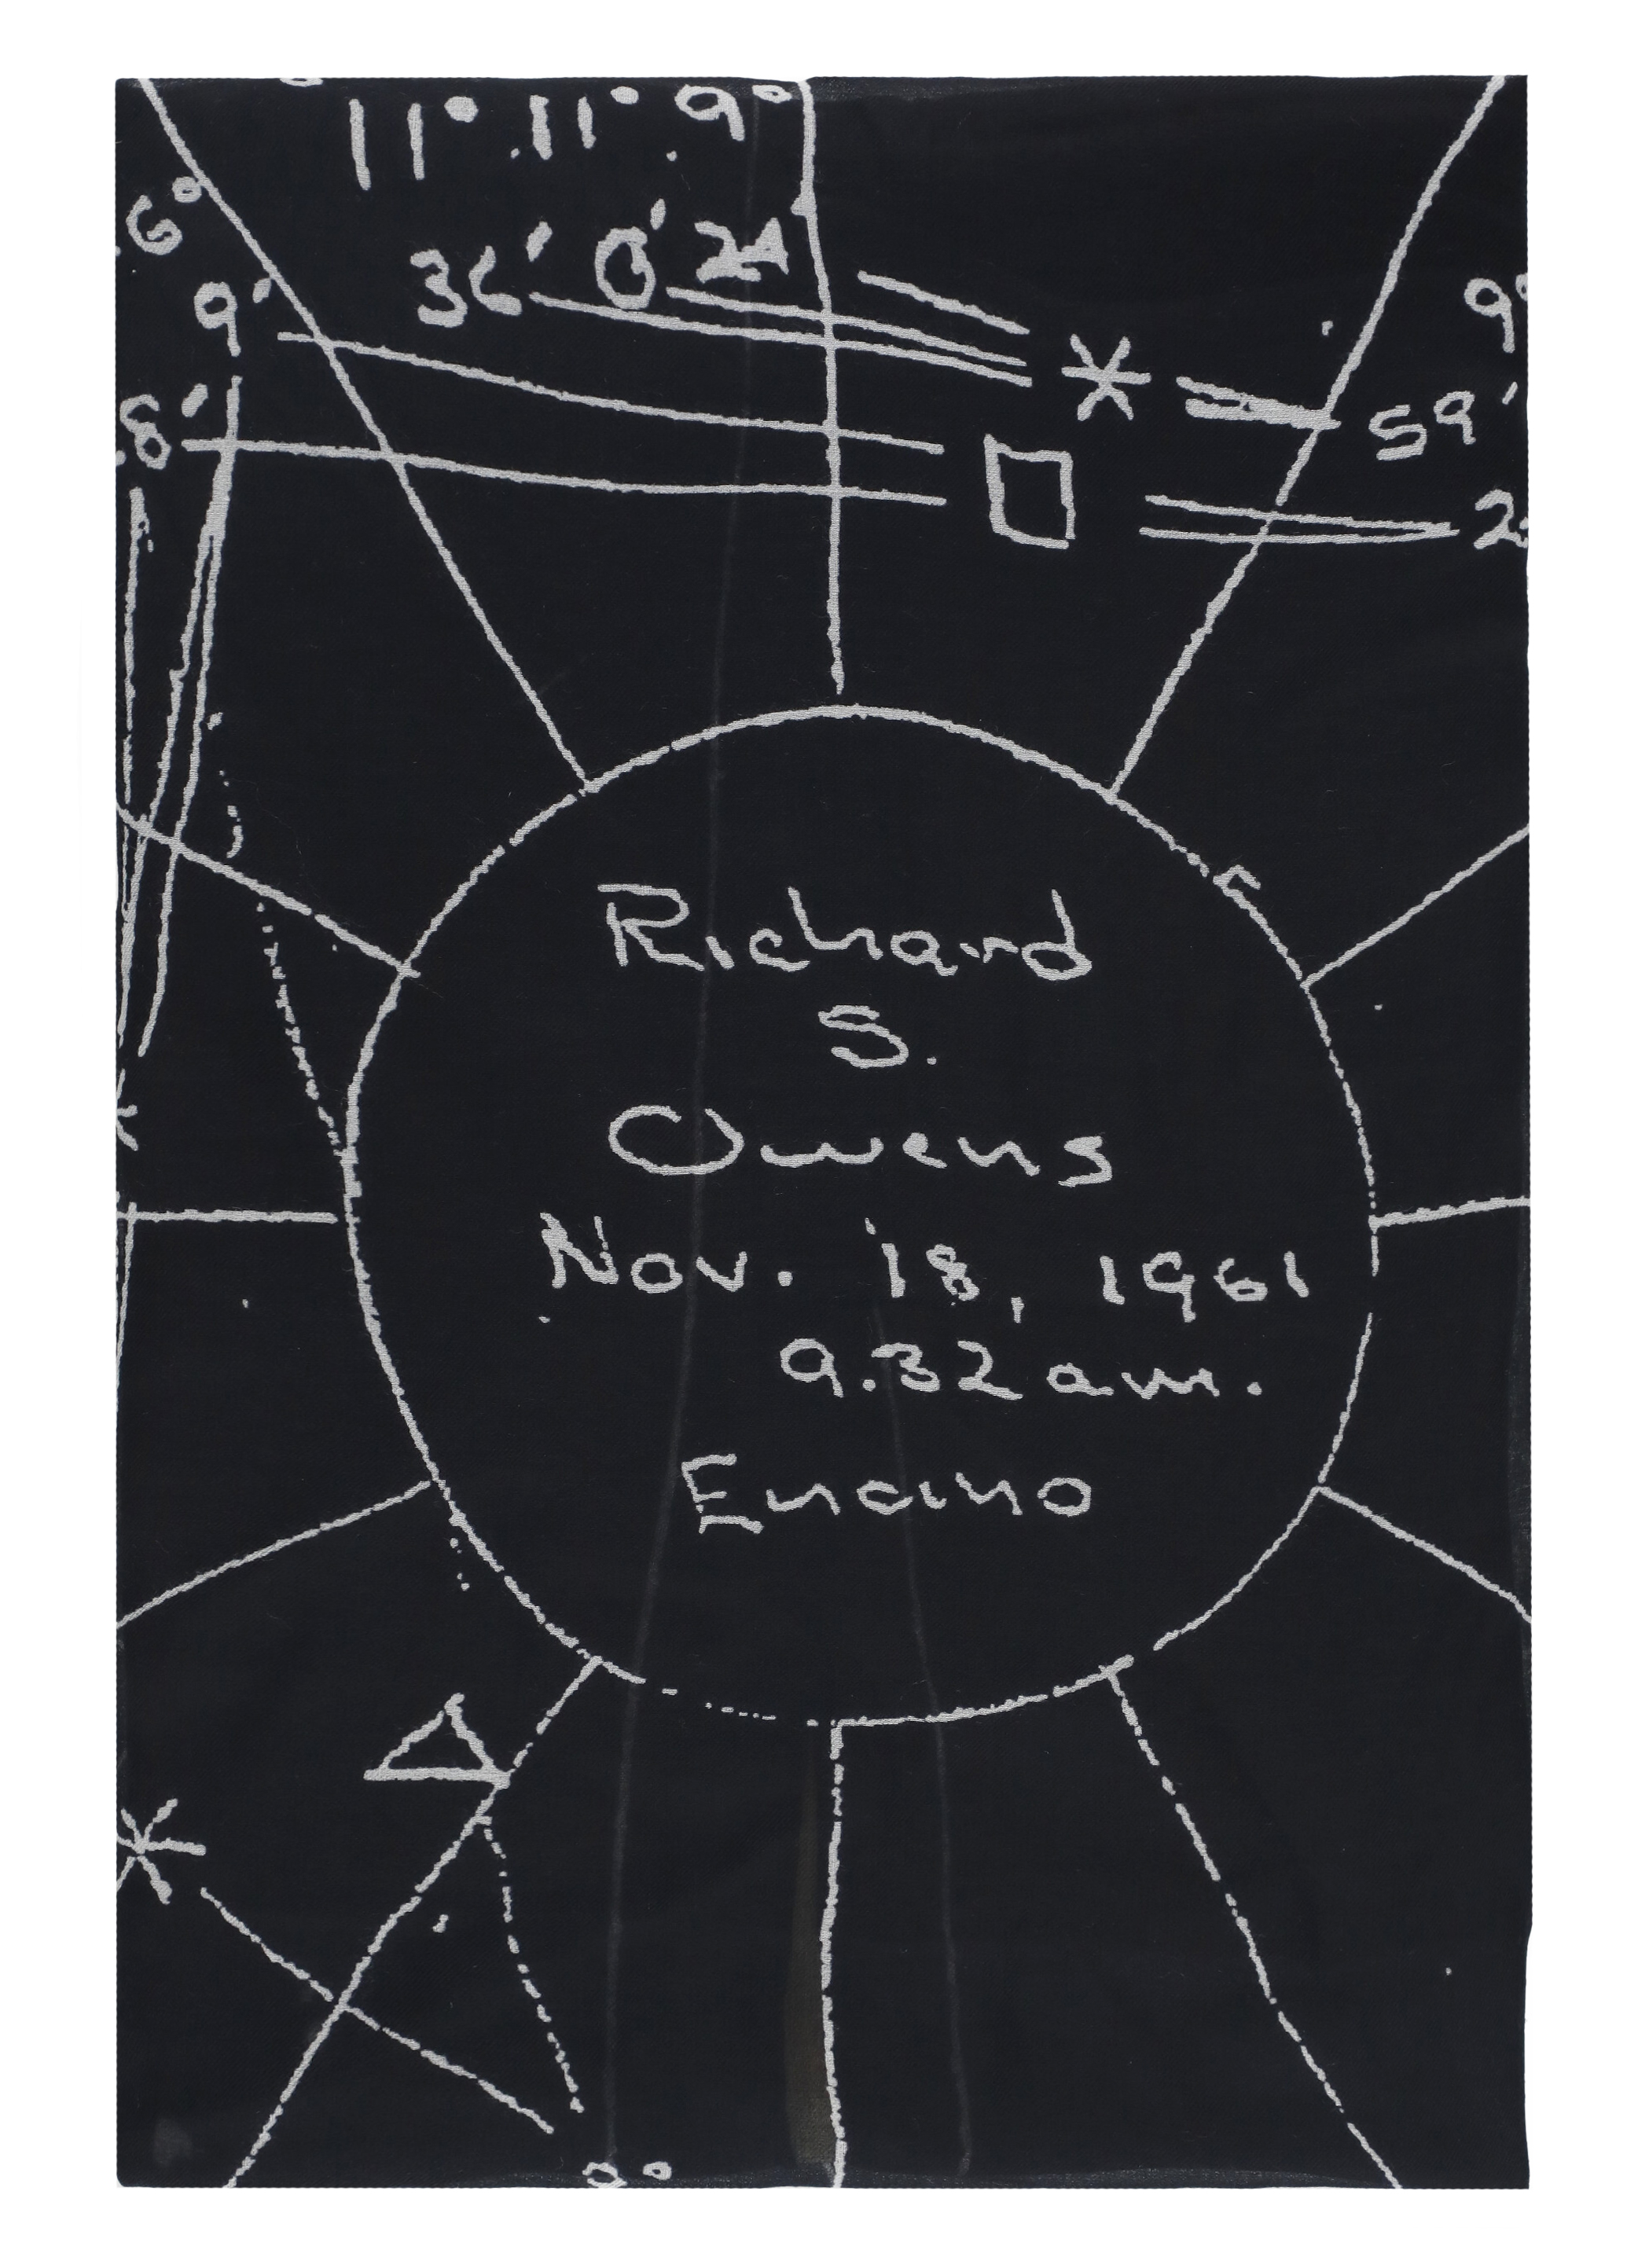 11° 11° 9°
6°
36' 0' 24
9'
9°
59'
8'
2
Richard
S.
Owens
Nov. 18, 1961
9.32 am.
Encino